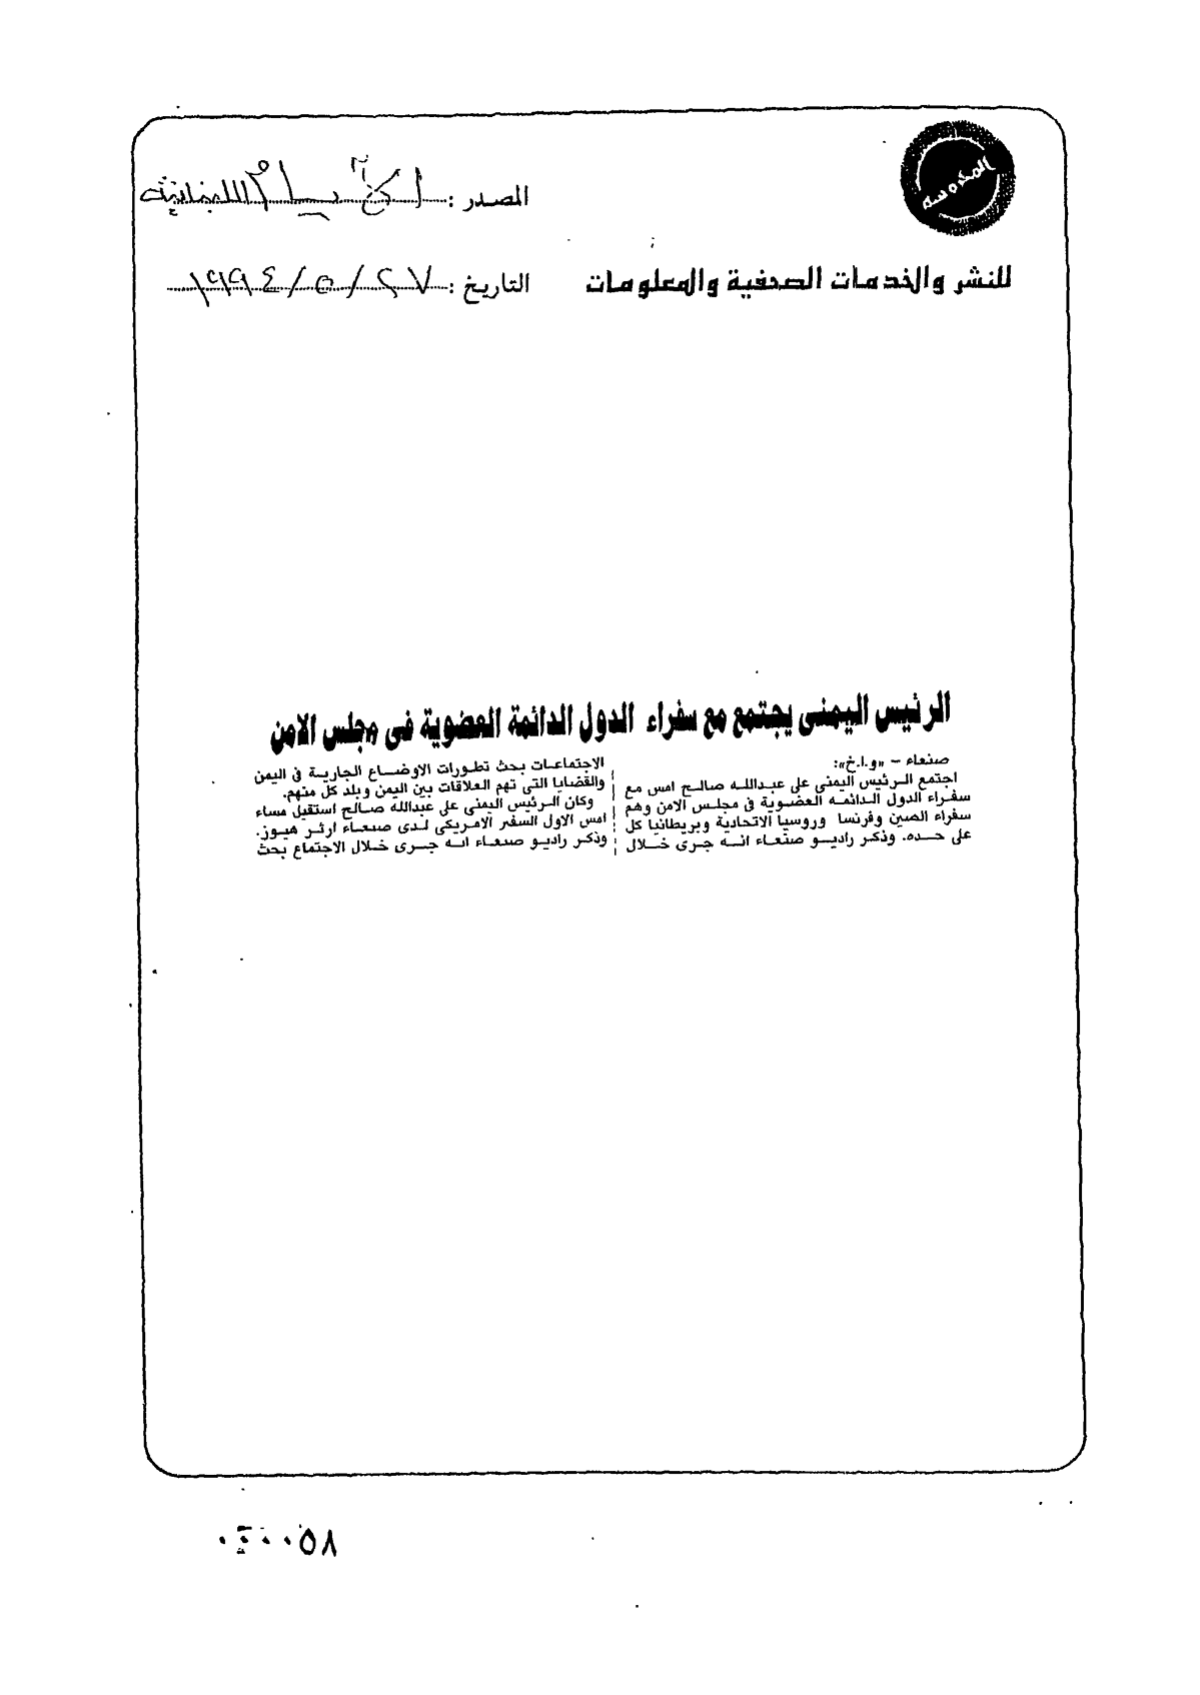 المحروسة
المصدر : اللبنانية
للنشر والخدمات الصحفية والمعلومات
التاريخ : ٢٧ / ٥ / ١٩٩٤
الرئيس اليمنى يجتمع مع سفراء الدول الدائمة العضوية فى مجلس الامن
صنعاء – «و.ا.خ»:
اجتمع الرئيس اليمنى على عبدالله صالح امس مع
سفراء الدول الدائمه العضوية فى مجلس الامن وهم
سفراء الصين وفرنسا وروسيا الاتحادية وبريطانيا كل
على حده. وذكر راديو صنعاء انه جرى خلال
الاجتماعات بحث تطورات الاوضاع الجارية فى اليمن
والقضايا التى تهم العلاقات بين اليمن وبلد كل منهم.
وكان الرئيس اليمنى على عبدالله صالح استقبل مساء
امس الاول السفير الامريكى لدى صنعاء ارثر هيوز.
وذكر راديو صنعاء انه جرى خلال الاجتماع بحث